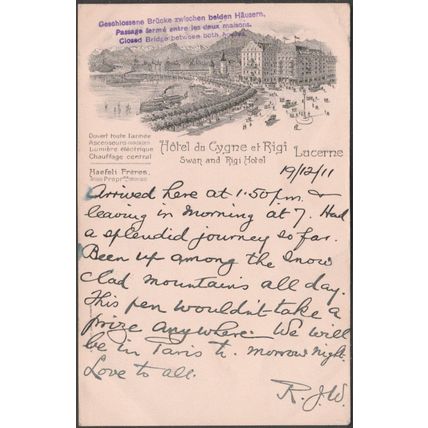 Geschlossene Brücke zwischen beiden Häusern.
Passage fermé entre les deux maisons.
Closed Bridge between both houses.
Ouvert toute l'année
Ascenseurs
Lumière électrique
Chauffage central
Haefeli Frères,
Hôtel du Cygne et Rigi
Swan and Rigi Hotel
Lucerne
19/12/11
Arrived here at 1.50 p.m. &
leaving in morning at 7. Had
a splendid journey so far.
Been up among the snow
clad mountains all day.
This pen wouldn't take a
prize anywhere. We will
be in Paris to-morrow night.
Love to all.
R. J. W.